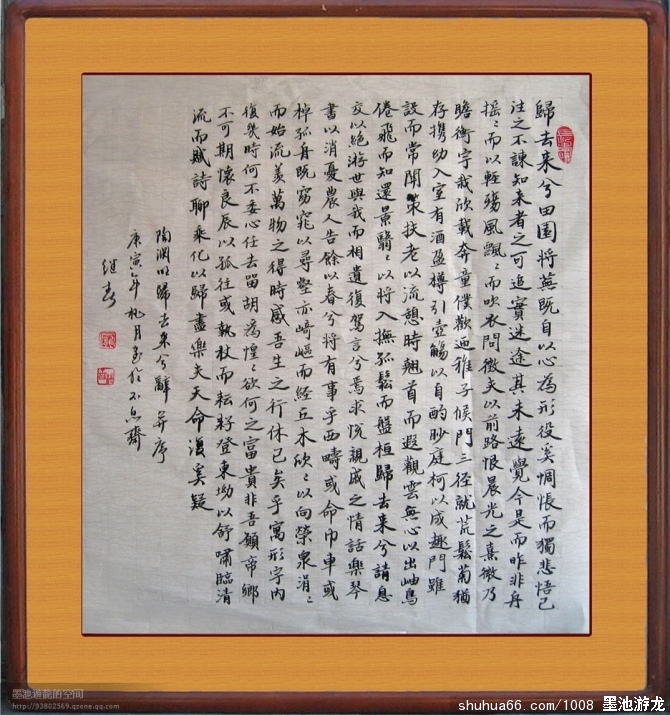 歸去来兮田園將蕪既自以心為形役奚惆悵而獨悲悟已
往之不諫知来者之可追實迷途其未遠覺今是而昨非舟
摇〻而以輕殤風飄〻而吹衣問徵夫以前路恨晨光之熹微乃
瞻衡宇哉欣載奔童僕歡迎稚子候門三径就荒鬆菊猶
存携幼入室有酒盈樽引壺觴以自酌眄庭柯以成趣門雖
設而常閉策扶老以流憩時翹首而遐觀雲無心以出岫鳥
倦飛而知還景翳〻以將入撫孤鬆而盤桓歸去来兮請息
交以絕游世與我而相遺復駕言兮焉求悦親戚之情話樂琴
書以消憂農人告餘以春兮將有事乎西疇或命巾車或
棹孤舟既窈窕以尋壑亦崎嶇而經丘木欣〻以向榮泉涓〻
而始流羡萬物之得時感吾生之行休已矣乎寓形宇内
復幾時何不委心任去留胡為惶〻欲何之富貴非吾願帝鄉
不可期懷良辰以孤往或執杖而耘耔登東坳以舒嘯臨清
流而賦詩聊乘化以歸盡樂夫天命復奚疑
陶渊明歸去来兮辭并序
庚寅年桃月書於不息齋
墨池遊龍的空间
http://93802569.qzone.qq.com
shuhua66.com/1008 墨池游龙